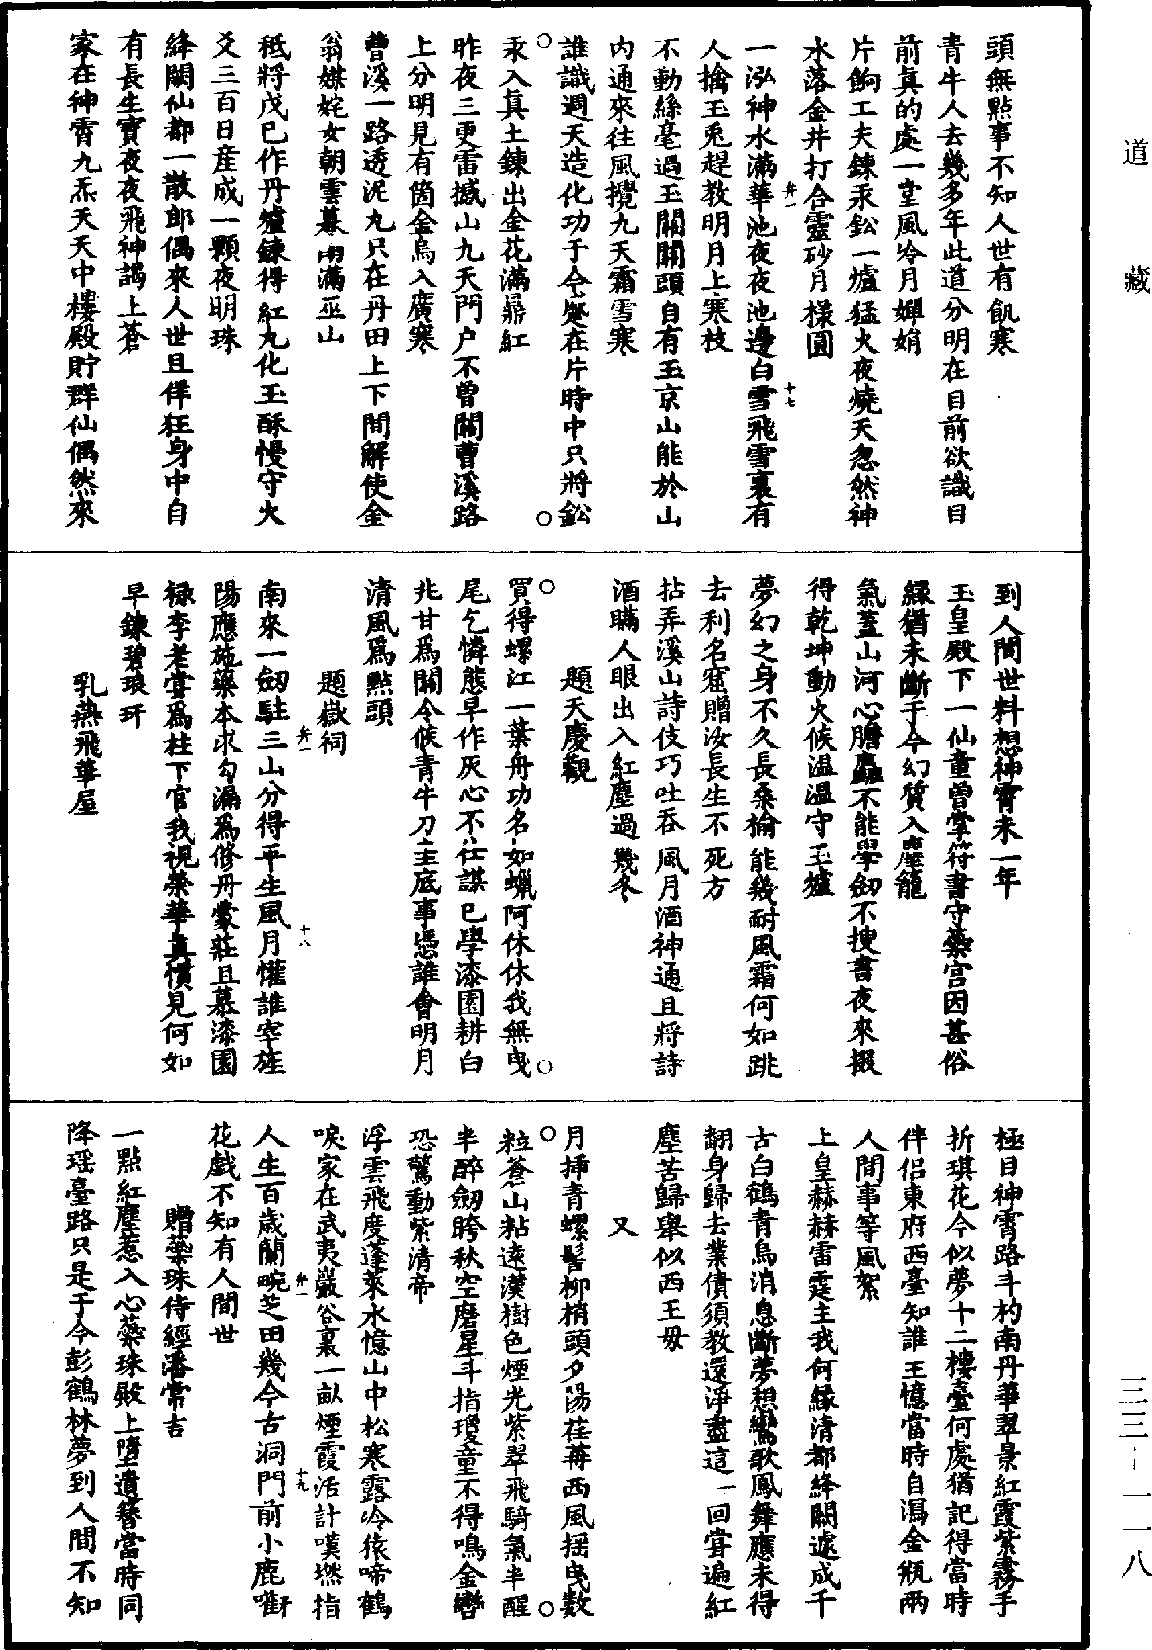 道藏
三三-一一八
頭無點事不知人世有飢寒
青牛人去幾多年此道分明在目前欲識目
前真的處一堂風冷月嬋娟
片餉工夫鍊汞鈆一爐猛火夜燒天忽然神
水落金井打合靈砂月樣圓
弁一 十七
一泓神水滿華池夜夜池邊白雪飛雪裏有
人擒玉兎趕教明月上寒枝
不動絲毫過玉關關頭自有玉京山能於山
內通來往風攪九天霜雪寒
誰識週天造化功于今㝎在片時中只將鈆
汞入真土鍊出金花滿鼎紅
昨夜三更雷撼山九天門户不曾關曹溪路
上分明見有箇金烏入廣寒
曹溪一路透泥丸只在丹田上下間解使金
翁媒姹女朝雲暮雨滿巫山
秪將戊已作丹爐鍊得紅丸化玉酥慢守火
爻三百日産成一顆夜明珠
絳闕仙都一散郎偶來人世且佯狂身中自
有長生寳夜夜飛神謁上蒼
家在神霄九炁天天中樓殿貯群仙偶然來
到人間世料想神霄未一年
玉皇殿下一仙童曽掌符書守蘂宫因甚俗
緣猶未斷于今幻質入塵籠
氣蓋山河心膽麤不能學劒不搜書夜來掇
得乾坤動火候温温守玉爐
夢幻之身不久長桑榆能幾耐風霜何如跳
去利名窟贈汝長生不死方
拈弄溪山詩伎巧吐吞風月酒神通且將詩
酒瞞人眼出入紅塵過幾冬
題天慶觀
買得螺江一葉舟功名如蠟阿休休我無曵
尾乞憐態早作灰心不仕謀已學漆園耕白
兆甘爲關令候青牛刀圭底事憑誰會明月
清風爲點頭
題嶽祠
弁一 十八
南來一劒駐三山分得平生風月懽誰宰旌
陽應施藥本求勾漏爲修丹蒙莊且慕漆園
禄李老甞爲柱下官我視榮華真慣見何如
早鍊碧琅玕
乳𤍠飛華屋
極目神霄路斗杓南丹華翠景紅霞紫霧手
折琪花今似夢十二樓臺何處猶記得當時
伴侶東府西臺知誰王憶當時自瀉金瓶兩
人間事等風絮
上皇赫赫雷霆主我何緣清都絳闕遽成千
古白鶴青烏消息斷夢想鸞歌鳳舞應未得
翻身歸去業債須教還淨盡這一回甞遍紅
塵苦歸舉似西王毋
又
月挿青螺髻柳梢頭夕陽荏苒西風揺曵數
粒蒼山粘遠漢樹色煙光紫翠飛騎氣半醒
半醉劒跨秋空磨星斗指瓊童不得鳴金轡
恐驚動紫清帝
浮雲飛度蓬萊水憶山中松寒露冷猿啼鶴
唳家在武夷巖谷裏一畝煙霞活計嘆㸐指
弁一 十九
人生百歳蘭畹芝田幾今古洞門前小鹿㘅
花戲不知有人間世
贈蘂珠侍經潘常吉
一點紅塵惹入心蘂珠殿上墮遺簪當時同
降瑶臺路只是于今彭鶴林夢到人間不知